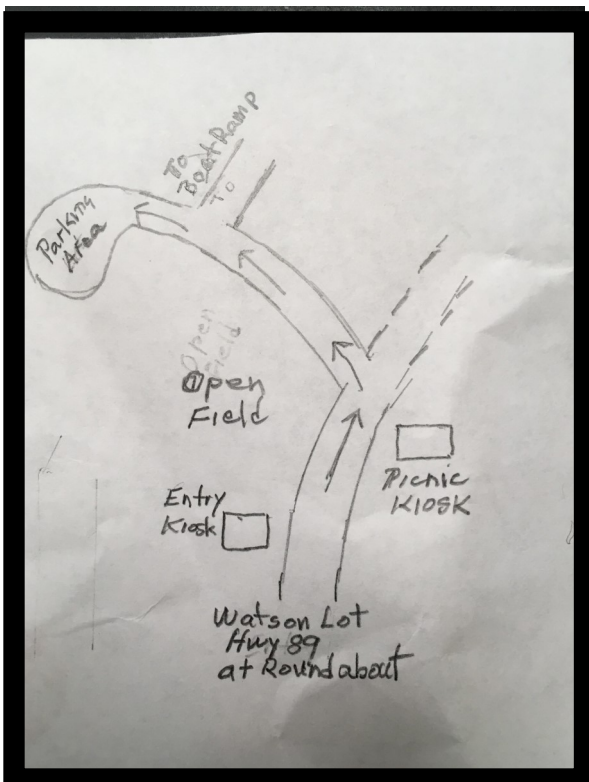 To
Boat Ramp
To
Parking
Area
Open
Field
Open
Field
Picnic
KIOSK
Entry
Kiosk
Watson Lot
Hwy 89
at Roundabout